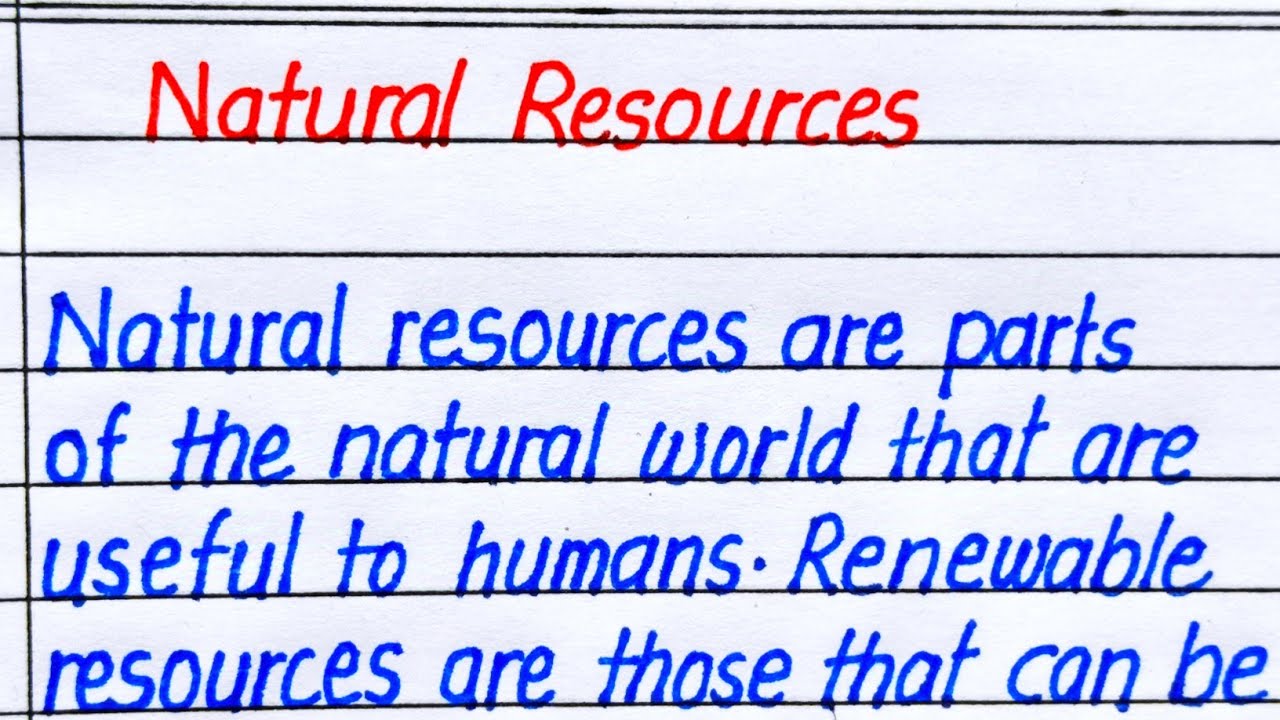 Natural Resources
Natural resources are parts
of the natural world that are
useful to humans. Renewable
resources are those that can be